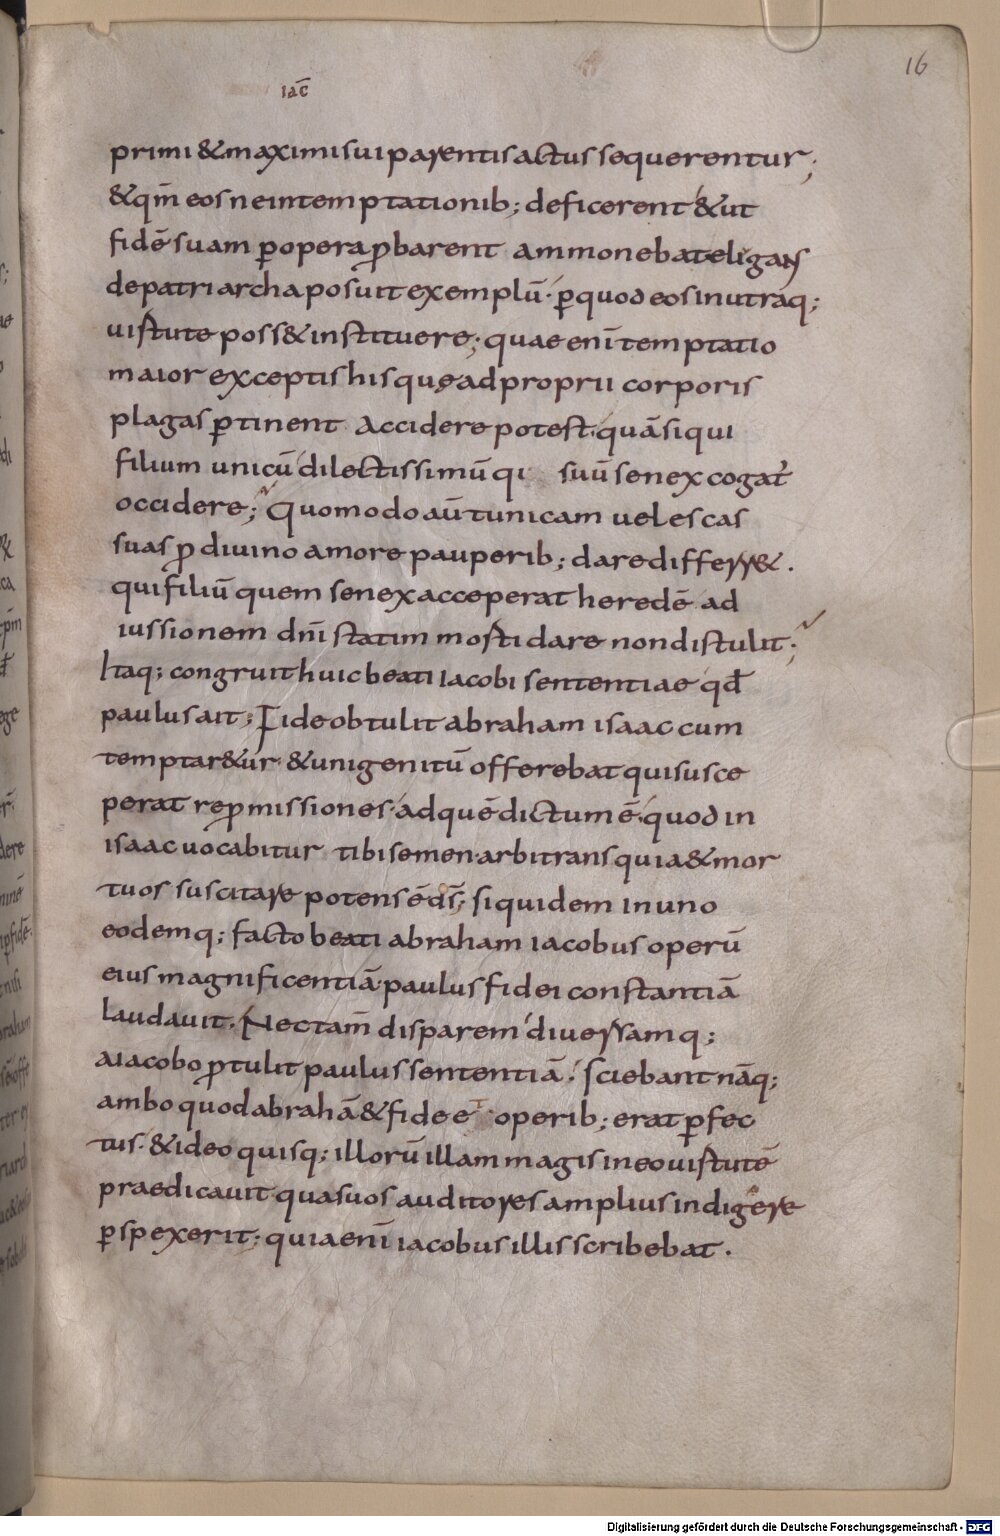 16
iac̄
primi &maximi sui parentis actus sequerentur;
&qm̄ eos ne in temptationib; deficerent &ut
fidē suam ꝑ opera ꝓbarent ammonebat eligans
de patriarcha posuit exemplū· ꝑ quod eos in utraq;
uirtute poss& instituere; quae enī temptatio
maior exceptis his quę ad proprii corporis
plagas ꝑtinent accidere potest· quā si qui
filium unicū dilectissimū qi suū senex cogat᷑
occidere; Quomodo aūt tunicam uel escas
suas ꝓ diuino amore pauperib; dare differr&.
qui filiū quem senex acceperat heredē ad
iussionem dn̄i statim morti dare non distulit;
Itaq; congruit huic beati iacobi sententiae qd̄
paulus ait; Fide obtulit abraham isaac cum
temptar&ur· &unigenitū offerebat qui susce
perat repromissiones· ad quē dictum ē· quod in
isaac uocabitur tibi semen· arbitrans quia &mor
tuos suscitare potens ē ds̄; siquidem in uno
eodemq; facto beati abraham iacobus operū
eius magnificentiā· paulus fidei constantiā
laudauit. Nec tam̄ disparem diuersamq;
a iacobo ꝓtulit paulus sententiā· sciebant nāq;
ambo quod abrahā &fide e operib; erat ꝑfec
tus· &ideo quisq; illorū illam magis in eo uirtutē
praedicauit qua suos auditores amplius indigere
ꝑspexerit; quia enī iacobus illis scribebat.
Digitalisierung gefördert durch die Deutsche Forschungsgemeinschaft - DFG